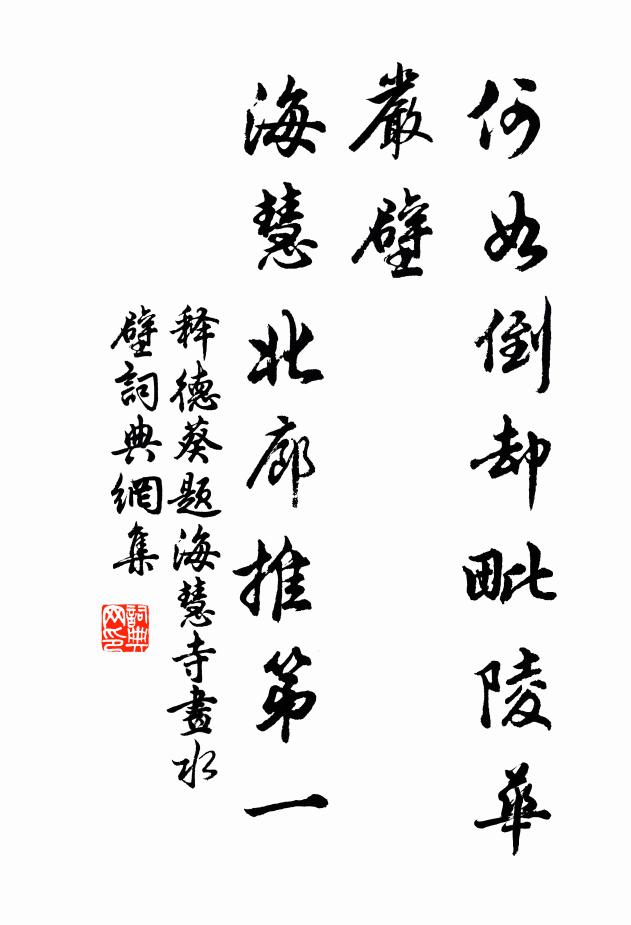 何如倒却毗陵華
嚴壁
海慧北廊推第一
释德葵題海慧寺畫水
壁詞典網集
詞典
网印